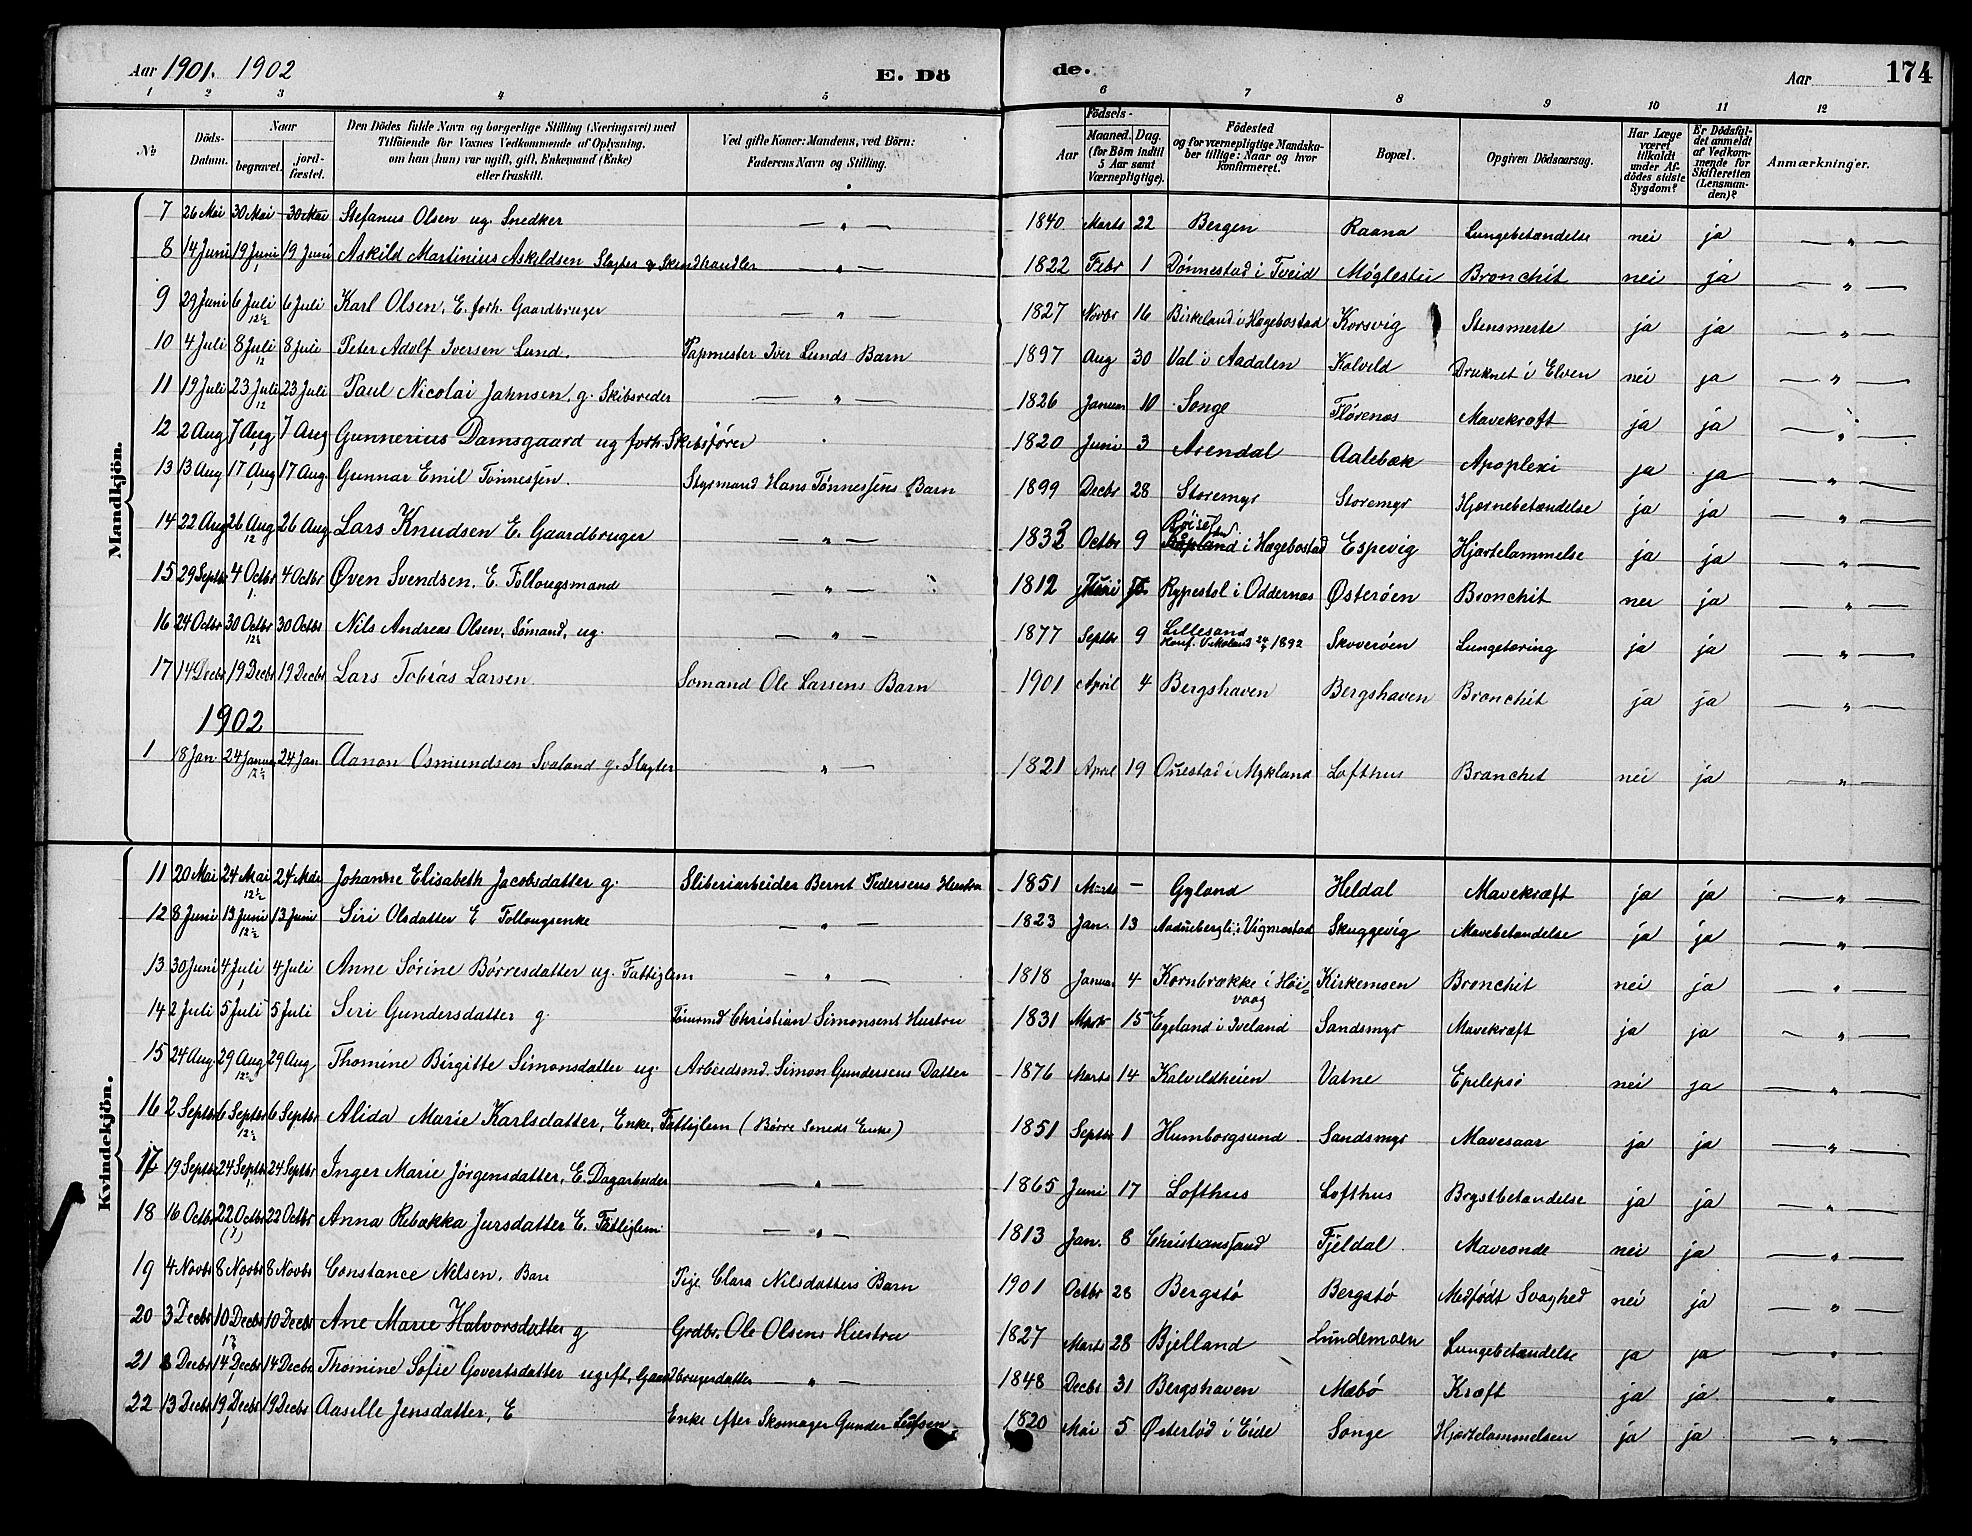 Aar 1901. 1902 E. Döde. Aar 174
1 2 3 4 5 6 7 8 9 10 11 12
No Döds-Datum. Naar begravet. jordfæstet. Den Dödes fulde Navn og borgerlige Stilling (Næringsvei) med Tilföiende for Voxnes Vedkommende af Oplysning, om han (hun) var ugift, gift, Enkemand (Enke) eller fraskilt. Ved gifte Koner: Mandens, ved Börn: Faderens Navn og Stilling. Födsels- Aar Maaned. Dag. (for Börn indtil 5 Aar samt Værnepligtige). Födested og for værnepligtige Mandskaber tillige: Naar og hvor konfirmeret. Bopæl. Opgiven Dödsaarsag. Har Læge været tilkaldt under Afdödes sidste Sygdom? Er Dödsfaldet anmeldt af Vedkommende for Skifteretten (Lensmanden)? Anmærkninger.
Mandkjön.
7 26 Mai 30 Mai 30 Mai Stefanus Olsen ug. Snedker — " — 1840 Marts 22 Bergen Raana Lungebetændelse nei ja — " —
8 14 Juni 19 Juni 1 19 Juni Askild Martinius Askildsen Slagter & Skindhandler — " — 1822 Febr 1 Dønnestad i Tveid Møglestu Bronchit nei ja — " —
9 29 Juni 6 Juli 12½ 6 Juli Karl Olsen, E. forh. Gaardbruger — " — 1827 Novbr 16 Birkeland i Hægebostad Korsvig Stensmerte ja ja — " —
10 4 Juli 8 Juli 12 8 Juli Peter Adolf Iversen Lund. Papmester Iver Lunds Barn 1897 Aug 30 Val i Aadalen Kalvild Druknet i Elven nei ja — " —
11 19 Juli 23 Juli 12 23 Juli Paul Nicolai Jahnsen, g. Skibsreder — " — 1826 Januar 10 Songe Flørenæs Mavekræft ja ja "
12 2 Aug 7 Aug 1 7 Aug Gunnerius Damsgaard ug forh. Skibsfører 1820 Juni 3 Arendal Aalebæk Apoplexi ja ja — " —
13 13 Aug 17 Aug 1 17 Aug. Gunnar Emil Tønnessen. Styrmand Hans Tønnessens Barn 1899 Decbr 28 Storemyr Storemyr Hjernebetændelse ja ja — " —
14 22 Aug 26 Aug 12 26 Aug. Lars Knudsen E. Gaardbruger — " — 1832 Octbr 9 i Hægebostad Espevig Hjertelammelse ja ja — " —
15 29 Septbr 4 Octbr 1 4 Octbr Øven Svendsen, E. Follougsmand — " — 1812 Juni Rypestøl i Oddernæs Østerøen Bronchit nei ja — " —
16 24 Octbr 30 Octbr 12½ 30 Octbr Nils Andreas Olsen, Sømand, ug. — " — 1877 Septbr 9 Lillesand Konf. 1892 Skoverøen Lungetæring ja ja — " —
17 14 Decbr 19 Decbr 19 Decbr Lars Tobias Larsen Sømand Ole Larsens Barn 1901 April 4 Bergshaven Bergshaven Bronchit ja ja — " —
1902
1 18 Jan 24 Januar 12½ 24 Jan Aanon Osmundsen Svaland g. Slagter — " — 1821 April 19 i Mykland Lofthus Bronchit nei ja — " —
Kvindekjön.
11 20 Mai 24 Mai 12½ 24 Mai Johanne Elisabeth Jacobsdatter g. Sliberiarbeider Bernt Pedersens Hustru 1851 Marts — Gyland Heldal Mavekræft ja ja — " —
12 8 Juni 13 Juni 12½ 13 Juni Siri Olsdatter E Follougsenke — " — 1823 Jan. 13 i Vigmostad Skuggevig Mavebetændelse ja ja — " —
13 30 Juni 4 Juli 1 4 Juli Anne Sørine Børresdatter ug. Fattiglem — " — 1818 Januar 4 Kornbrække i Høivaag Kirkemoen Bronchit nei ja — " —
14 2 Juli 5 Juli 5 Juli Siri Gundersdatter g. Christian Simonsens Hustru 1831 15 Egeland i Iveland Sandsmyr Mavekræft ja ja — " —
15 24 Aug. 29 Aug 12½ 29 Aug Thomine Birgitte Simonsdatter ug. Arbeidsmd. Simon Gundersens Datter 1876 Marts 14 Kalvildheien Vatne Epilepsi nei ja — " —
16 2 Septbr 6 Septbr 12½ 6 Septbr Alida Marie Karlsdatter, Enke, Fattiglem (Børre Smeds Enke) 1851 Septbr 1 Humborgsund Sandsmyr Mavesaar ja ja — " —
17 19 Septbr 24 Septbr 1 24 Septbr Inger Marie Jörgensdatter, E. Dagarbeider — " — 1865 Juni 17 Lofthus Lofthus Brystbetændelse ja ja — " —
18 16 Octbr 22 Octbr (1) 22 Octbr Anna Rebækka Jursdatter E. Fattiglem — " — 1813 Jan. 8 Christianssand Fjeldal Maveonde nei ja — " —
19 4 Novbr 8 Novbr 1 8 Novbr Constance Nilsen, Barn Pige Clara Nilsdatters Barn 1901 Octbr 28 Bergstø Bergstø Medfødt Svaghed nei ja — " —
20 3 Decbr 10 Decbr 10 Decbr Ane Marie Halvorsdatter g Grdbr. Ole Olsens Hustru 1827 Marts 28 Bjelland Lundemoen Lungebetændelse ja ja — " —
21 8 Decbr 14 Decbr 1 14 Decbr Thomine Sofie Govertsdatter ugift, Gaardbrugerdatter — " — 1848 Decbr 31 Bergshaven Mæbø Kræft ja ja — " —
22 13 Decbr 19 Decbr 1 19 Decbr Aasille Jensdatter, E Enke efter Skomager Gunder 1820 Mai 5 i Eide Songe Hjertelammelsen ja ja — " —